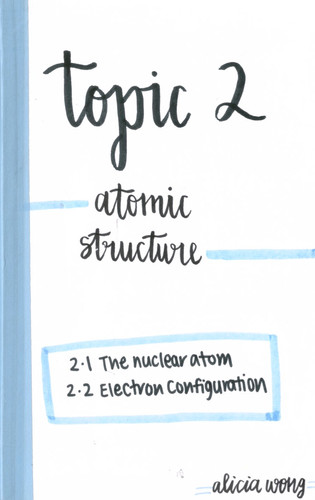 topic 2
atomic
structure
2.1 The nuclear atom
2.2 Electron Configuration
alicia wong